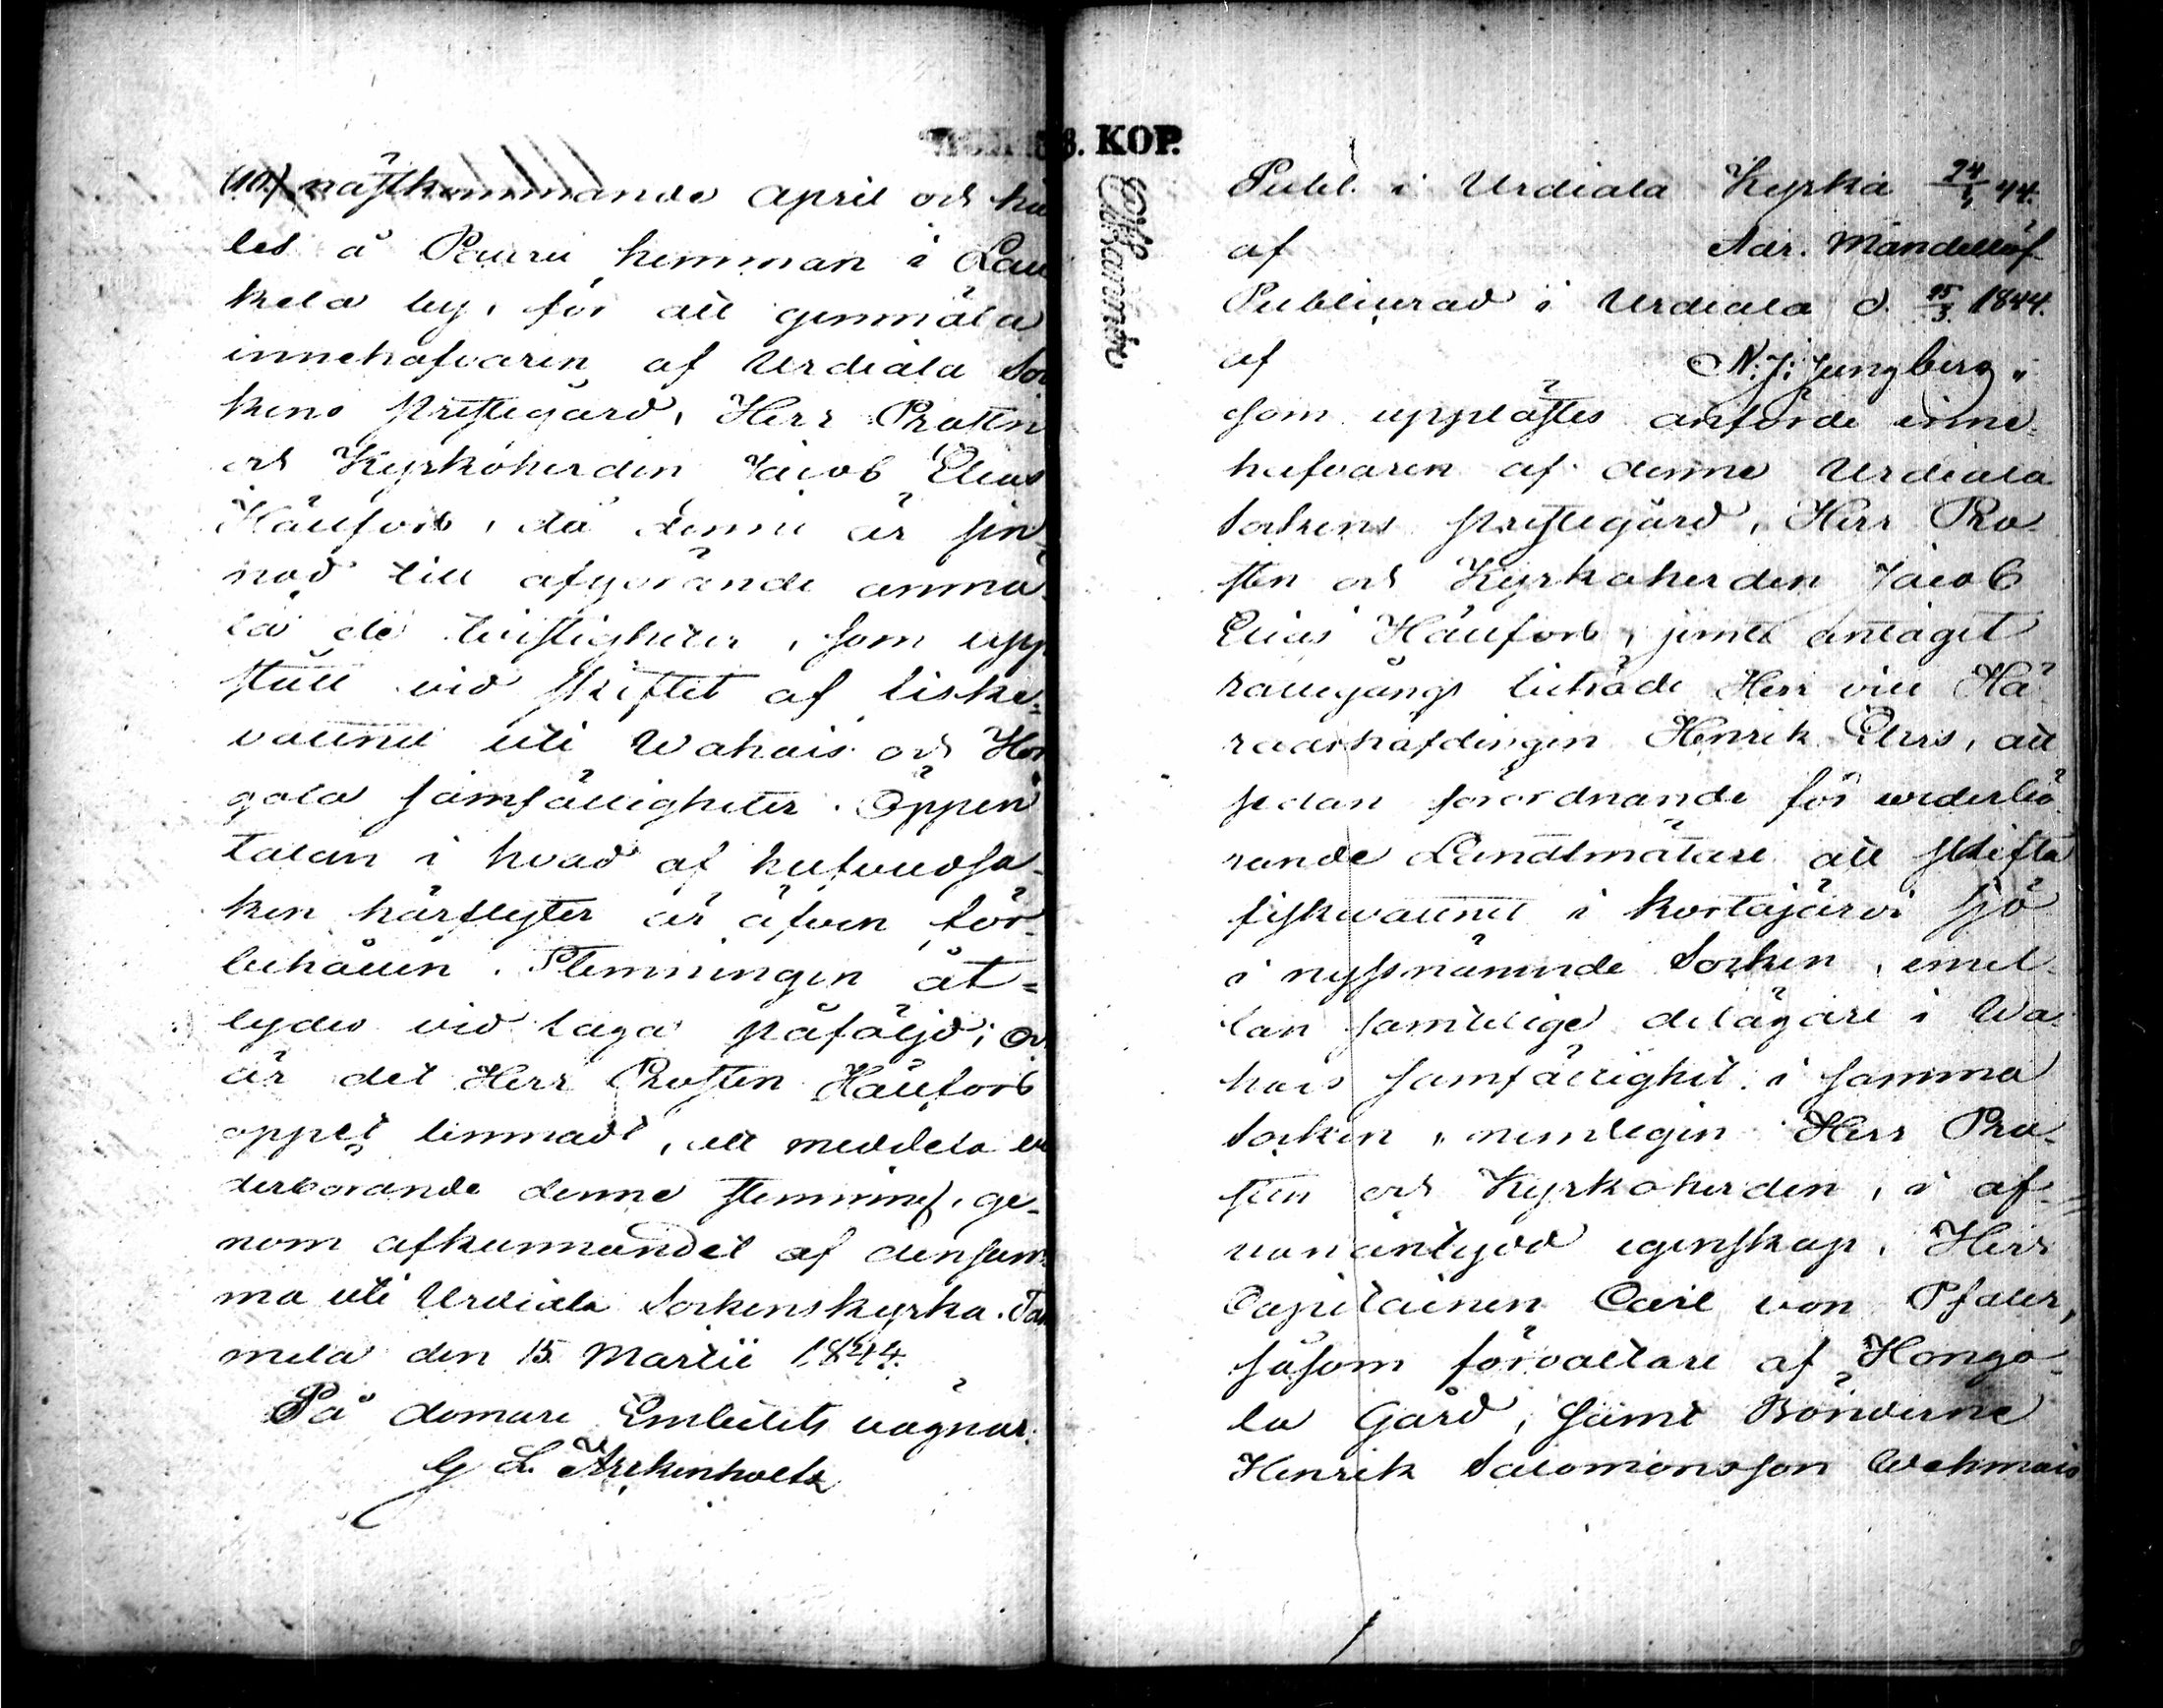 (10.) nästkommande April och hål
les å Peurru hemman i Lau
kela by, för att genmäla
innehafvaren af Urdiala Sor
kens prestegård, Herr Prosten
och Kyrkoherden Jacob Elias
Hällfors, då denne är sin-
nad till afgörande anmä-
la de tvistigheter, som upp
stått vid skiftet af fiske-
vattnet uti Wahais och Hon
gola samfälligheter. Öppen
talan i hvad af hufvudsa-
ken härflyter är äfven för-
behållen. Stemningen åt-
lydes vid laga påföljd; och
är det Herr Prosten Hällfors
öppet lemnadt, att meddela ve
derbörande denne stemning, ge-
nom afkunnandet af densam-
ma uti Urdiala Sockens kyrka. Tam
mela den 15 Martii 1844.
På domare Embetets vägnar.
G L Arckenholtz
3. KOP.
Publ. i Urdiala Kyrka 24/3 44.
af Adr. Mandellöf
Publicerad i Urdiala d. 25/3 1844.
af N. J. Ljungberg,
som upplästes anförde inne-
hafvaren af denne Urdiala
Sockens prestegård, Herr Pro-
sten och Kyrkoherden Jacob
Elias Hällfors, jemte antaget
rättegångs biträde Herr vice Hä-
radshöfdingen Henrik Elers, att
sedan förordnande för vederbö-
rande Landtmätare att skifta
fiskvattnet i Kortajärvi sjö
i nyssnämnde Socken, emel-
lan samtelige delägare i Wa-
hais samfällighet i samma
Socken, nemligen Herr Pro-
sten och Kyrkoherden, i af-
vanantydd egenskap, Herr
Capitainen Carl von Pfaler,
såsom förvaltare af Hongo-
la Gård, samt Bönderne
Henrik Salomonsson Wehmais